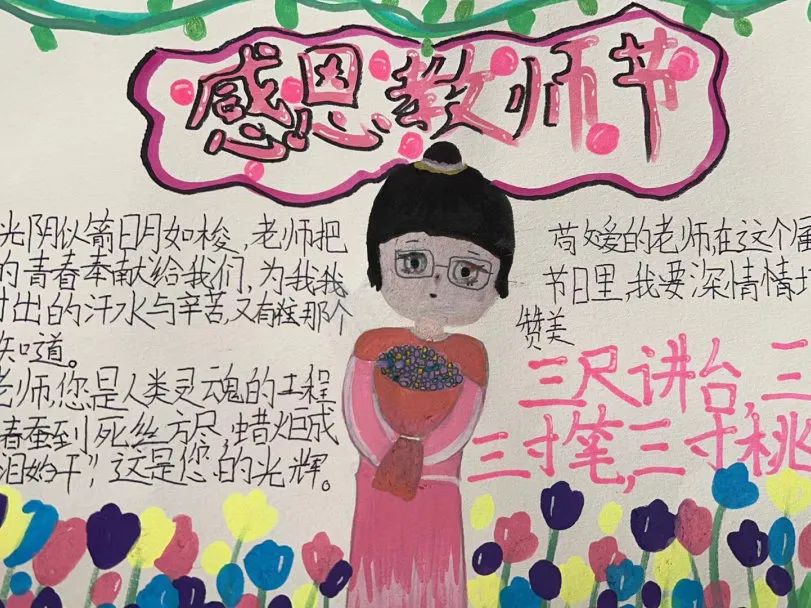 感恩教师节
光阴似箭日月如梭，老师把
的青春奉献给我们，为我我
付出的汗水与辛苦，又有谁那个
知道。
老师，您是人类灵魂的工程
春蚕到死丝方尽，蜡炬成
泪始干"这是您的光辉。
敬爱的老师在这个届
节日里，我要深情情
赞美
三尺讲台，三
三寸笔，三寸桃